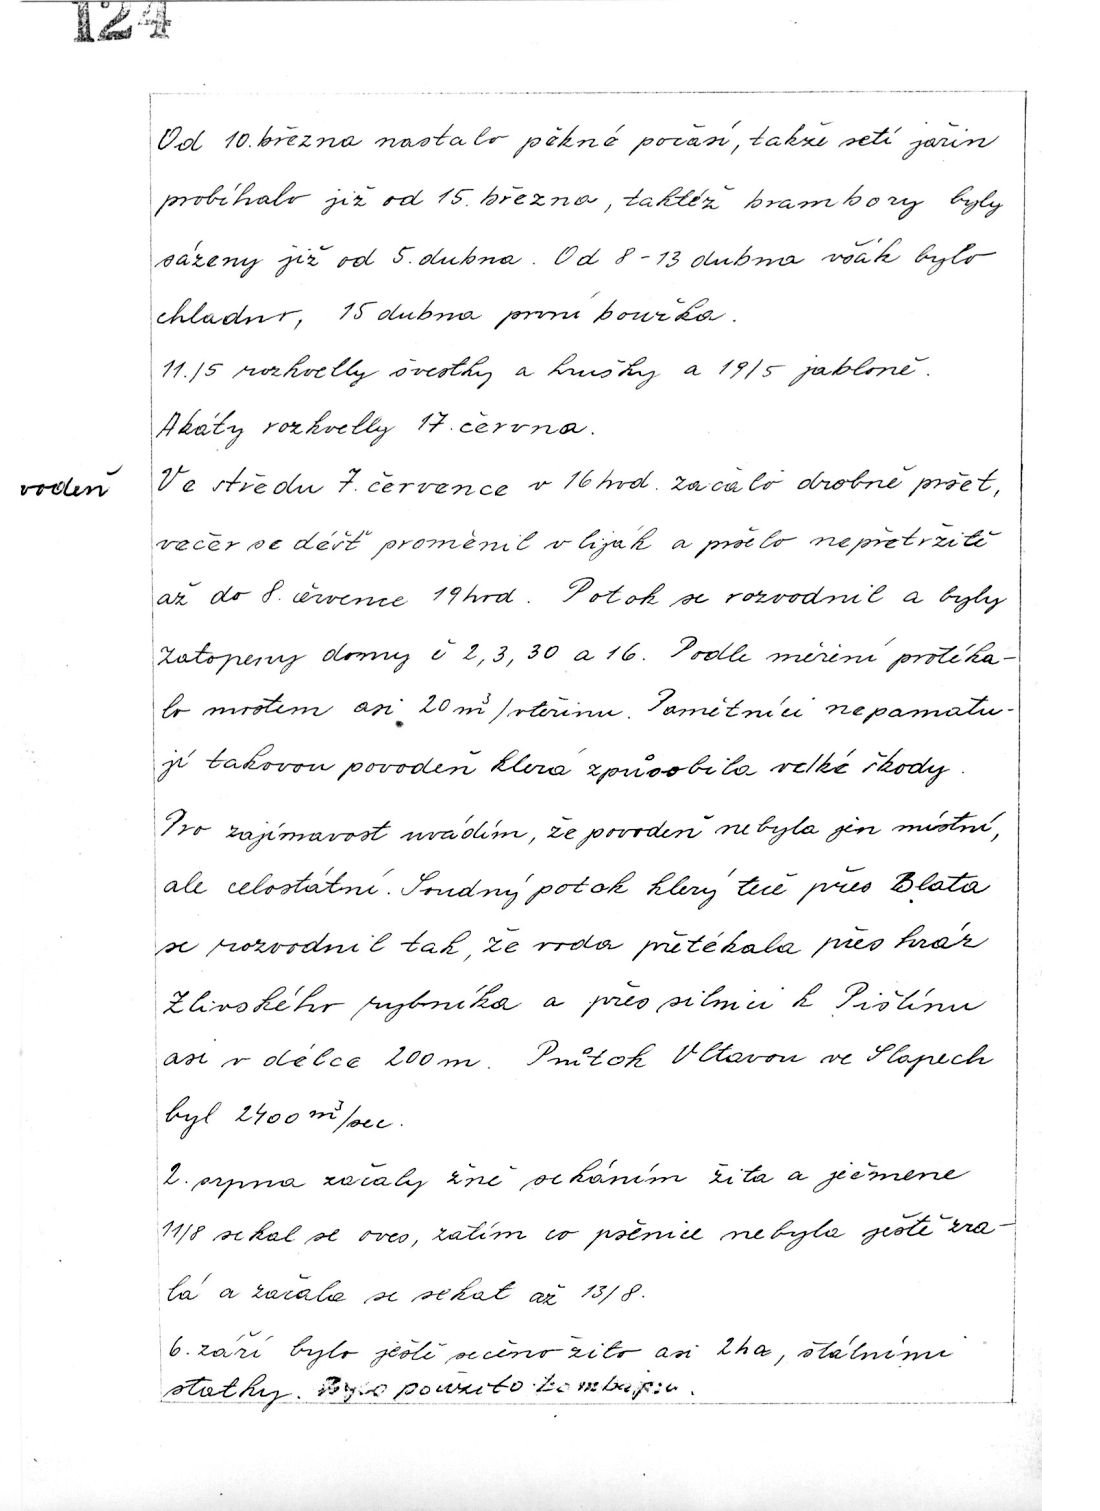 124
Od 10. března nastalo pěkné počasí, takže setí jařin
probíhalo již od 15. března, taktéž brambory byly
sázeny již od 5. dubna. Od 8-13 dubna všák bylo
chladno, 15 dubna první bouřka.
11./5 rozkvetly švestky a hrušky a 19/5 jabloně.
Akáty rozkvetly 17. června.
vodeň
Ve středu 7. července v 16 hod. začalo drobně pršet,
večer se déšť proměnil v liják a pršelo nepřetržitě
až do 8. července 19 hod. Potok se rozvodnil a byly
zatopeny domy č 2, 3, 30 a 16. Podle měření protéka-
lo mostem asi 20 m³/vteřinu. Pamětníci nepamatu-
jí takovou povodeň která způsobila velké škody.
Pro zajímavost uvádím, že povodeň nebyla jen místní,
ale celostátní. Soudný potok který teče přes Blata
se rozvodnil tak, že voda přetékala přes hráz
Zlivského rybníka a přes silnici k Pištínu
asi v délce 200 m. Průtok Vltavou ve Slapech
byl 2400 m³/sec.
2. srpna začaly žně sekáním žita a ječmene
11/8 sekal se oves, zatím co pšenice nebyla ještě zra-
lá a začala se sekat až 13/8.
6. září bylo ještě sečeno žito asi 2 ha, státními
statky. Bylo použito kombajnu.